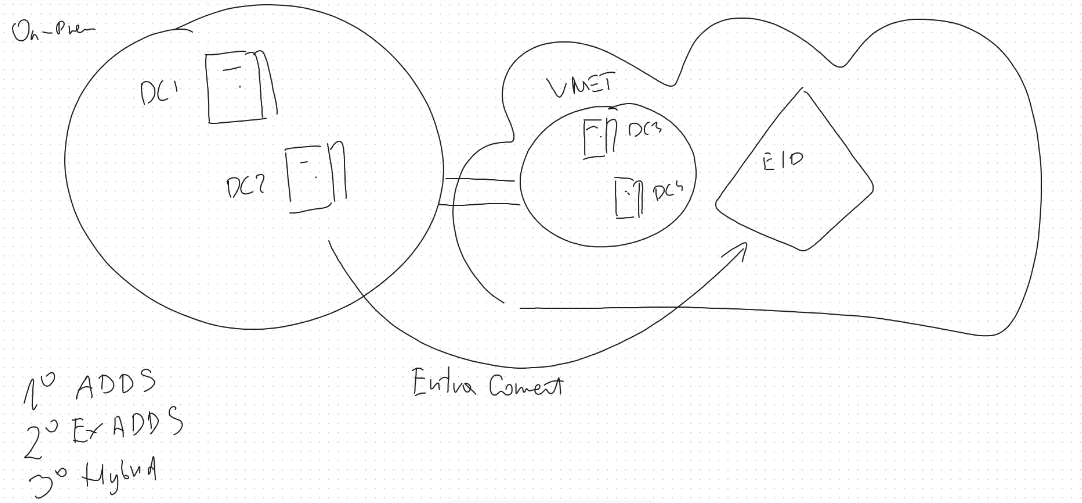 On-Prem
DC1
DC2
VNET
DC3
DC4
EID
Entra Connect
1º ADDS
2º Ex ADDS
3º Hybrid